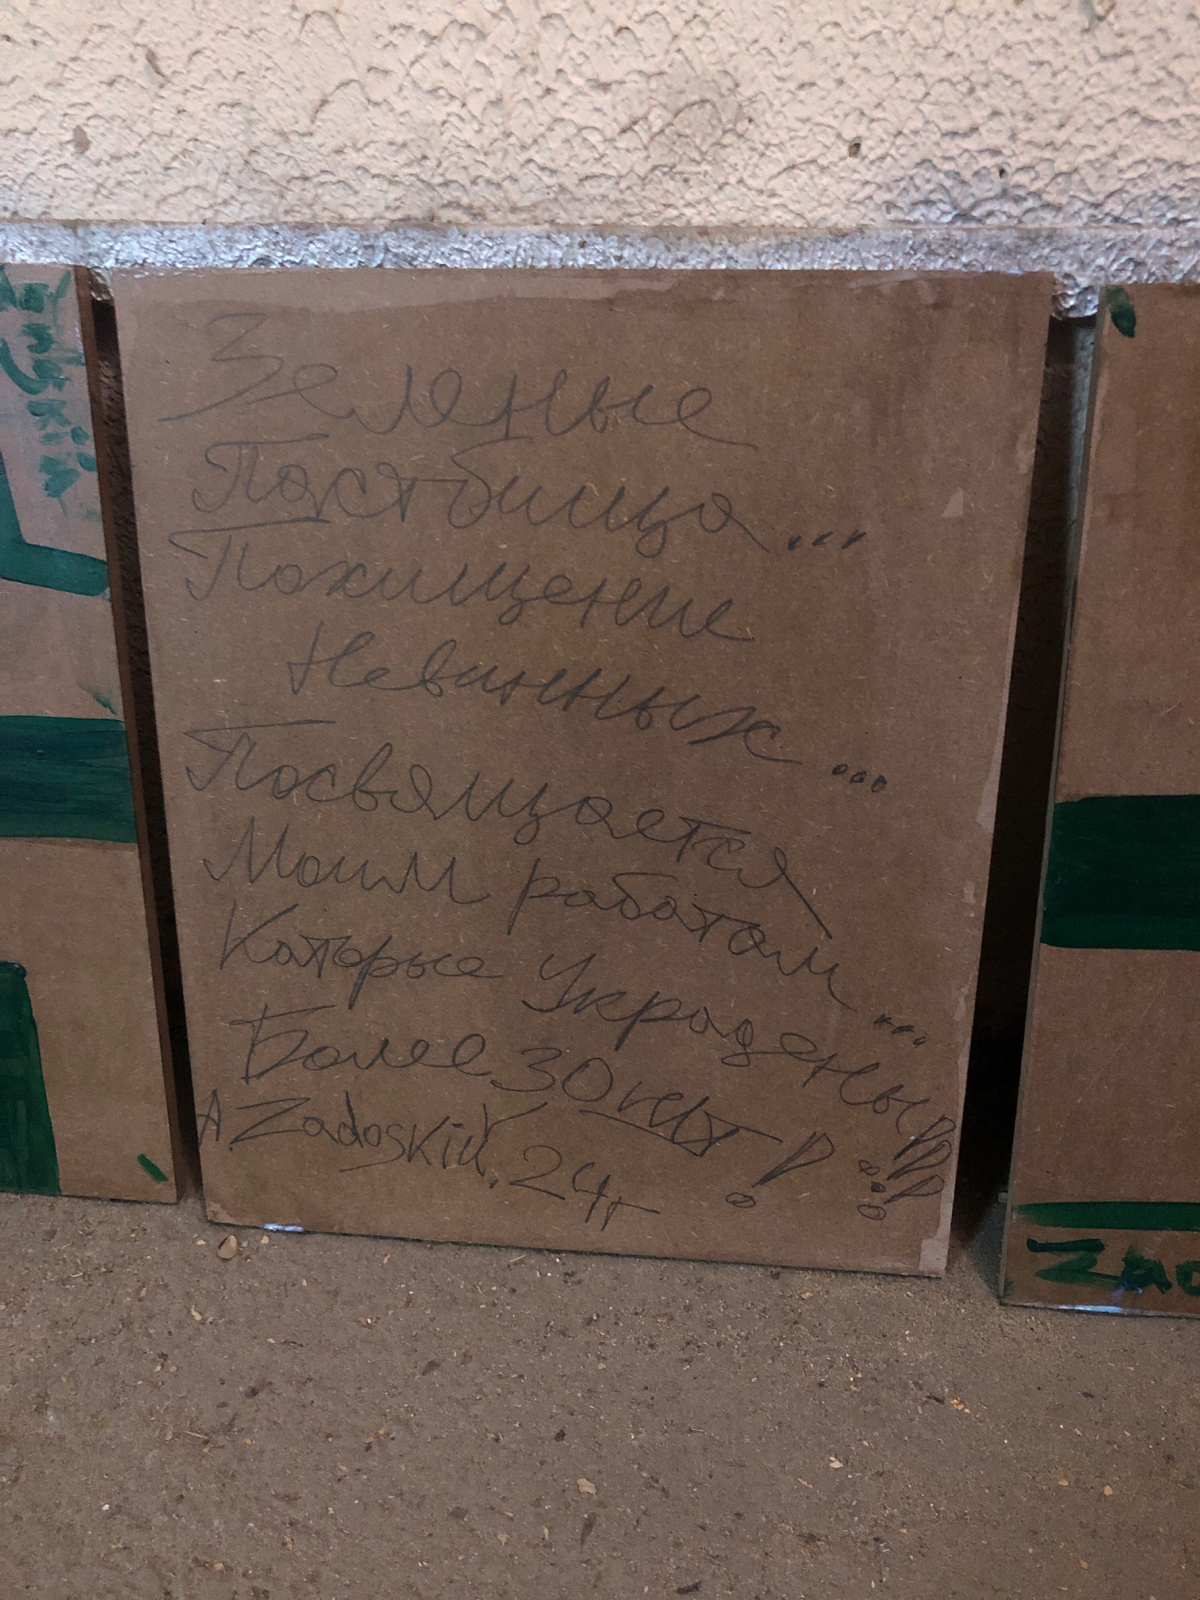 Зеленые
Пастбища...
Похищение
Невинных...
Посвящается
Моим работам...
Которые Украдены!!!
Более 30 лет!
A Zadoskiй. 24г
Zad